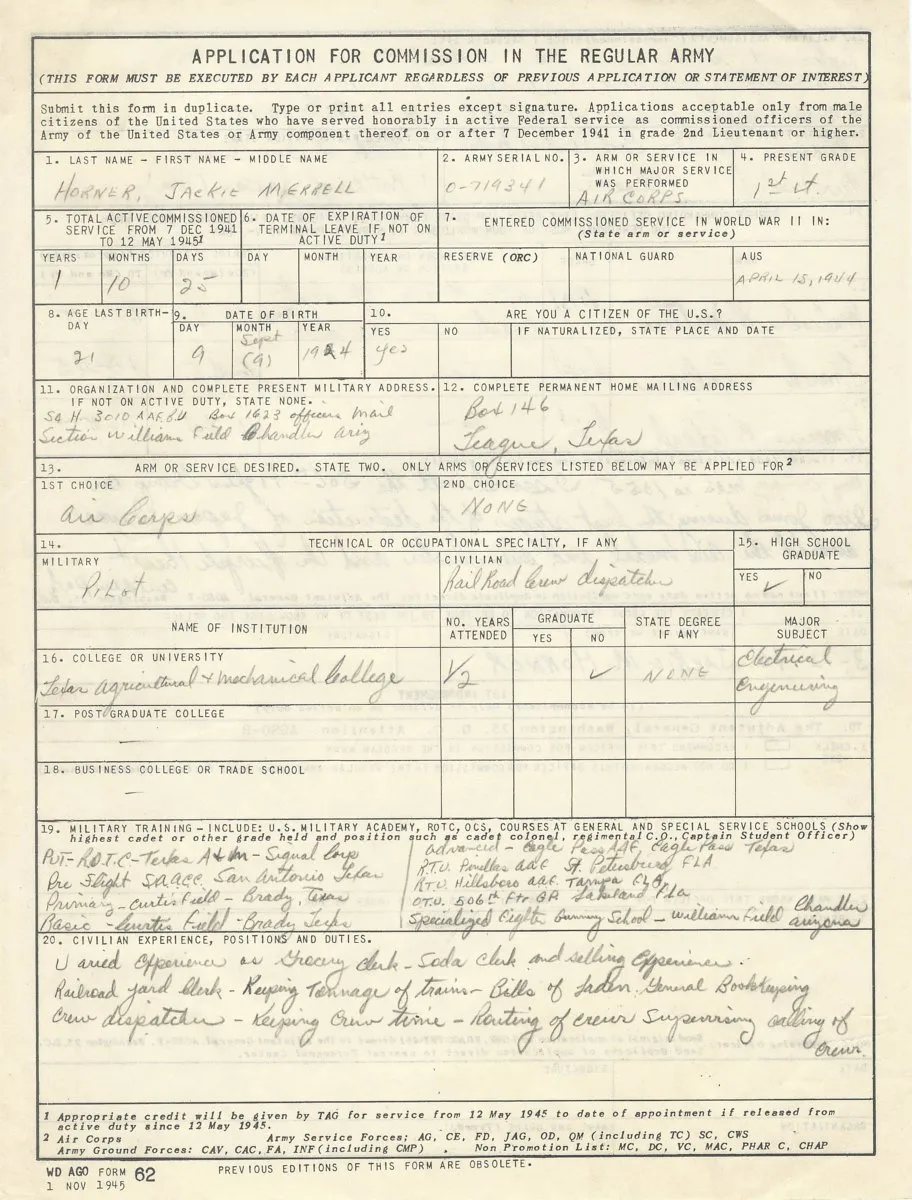 APPLICATION FOR COMMISSION IN THE REGULAR ARMY
(THIS FORM MUST BE EXECUTED BY EACH APPLICANT REGARDLESS OF PREVIOUS APPLICATION OR STATEMENT OF INTEREST)
Submit this form in duplicate. Type or print all entries except signature. Applications acceptable only from male
citizens of the United States who have served honorably in active Federal service as commissioned officers of the
Army of the United States or Army component thereof on or after 7 December 1941 in grade 2nd Lieutenant or higher.
1. LAST NAME - FIRST NAME - MIDDLE NAME
HORNER, JACKIE MERRELL
2. ARMY SERIAL NO.
O-719341
3. ARM OR SERVICE IN WHICH MAJOR SERVICE WAS PERFORMED
AIR CORPS
4. PRESENT GRADE
1st Lt.
5. TOTAL ACTIVE COMMISSIONED SERVICE FROM 7 DEC 1941 TO 12 MAY 1945¹
YEARS MONTHS DAYS
1 10 25
6. DATE OF EXPIRATION OF TERMINAL LEAVE IF NOT ON ACTIVE DUTY¹
DAY MONTH YEAR
7. ENTERED COMMISSIONED SERVICE IN WORLD WAR II IN:
(State arm or service)
RESERVE (ORC) NATIONAL GUARD AUS
APRIL 15, 1944
8. AGE LAST BIRTH-DAY
21
9. DATE OF BIRTH
DAY MONTH YEAR
9 Sept (9) 1924
10. ARE YOU A CITIZEN OF THE U.S.?
YES NO IF NATURALIZED, STATE PLACE AND DATE
yes
11. ORGANIZATION AND COMPLETE PRESENT MILITARY ADDRESS.
IF NOT ON ACTIVE DUTY, STATE NONE.
Sq H. 3010 AAFBU Box 1623 officers mail
Section Williams Field Chandler Ariz
12. COMPLETE PERMANENT HOME MAILING ADDRESS
Box 146
Teague, Texas
13. ARM OR SERVICE DESIRED. STATE TWO. ONLY ARMS OR SERVICES LISTED BELOW MAY BE APPLIED FOR²
1ST CHOICE
Air Corps
2ND CHOICE
NONE
14. TECHNICAL OR OCCUPATIONAL SPECIALTY, IF ANY
MILITARY
Pilot
CIVILIAN
Rail Road Crew dispatcher
15. HIGH SCHOOL GRADUATE
YES ✓ NO
NAME OF INSTITUTION
NO. YEARS ATTENDED
GRADUATE
YES NO
STATE DEGREE IF ANY
MAJOR SUBJECT
16. COLLEGE OR UNIVERSITY
Texas Agricultural & Mechanical College
1/2 ✓ NONE Electrical Engineering
17. POST GRADUATE COLLEGE
—
18. BUSINESS COLLEGE OR TRADE SCHOOL
—
19. MILITARY TRAINING - INCLUDE: U.S. MILITARY ACADEMY, ROTC, OCS, COURSES AT GENERAL AND SPECIAL SERVICE SCHOOLS (Show
highest cadet or other grade held and position such as cadet colonel, regimental C.O., Captain Student Officer)
Pvt- R.O.T.C-Texas A&M - Signal Corp
Pre Flight S.A.A.C.C. San Antonio Texas
Primary - Curtis Field - Brady, Texas
Basic - Curtis Field - Brady Texas
Advanced - Eagle Pass AAF, Eagle Pass Texas
R.T.U. Pinellas AAF St. Petersburg FLA
R.T.U. Hillsboro AAF. Tampa FLA
O.T.U. 506th Ftr GR Lakeland Fla
Specialized Fighter Gunnery School - Williams Field Chandler Arizona
20. CIVILIAN EXPERIENCE, POSITIONS AND DUTIES.
Varied Experience as Grocery Clerk - Soda clerk and selling Experience.
Railroad yard Clerk - Keeping Tonnage of trains - Bills of Laden. General Bookkeeping
Crew dispatcher - Keeping Crew time - Routing of crews Supervising calling of
Crews.
1 Appropriate credit will be given by TAG for service from 12 May 1945 to date of appointment if released from
active duty since 12 May 1945.
2 Air Corps Army Service Forces; AG, CE, FD, JAG, OD, QM (including TC) SC, CWS
Army Ground Forces: CAV, CAC, FA, INF (including CMP) . Non Promotion List: MC, DC, VC, MAC, PHAR C, CHAP
WD AGO FORM 62
1 NOV 1945
PREVIOUS EDITIONS OF THIS FORM ARE OBSOLETE.